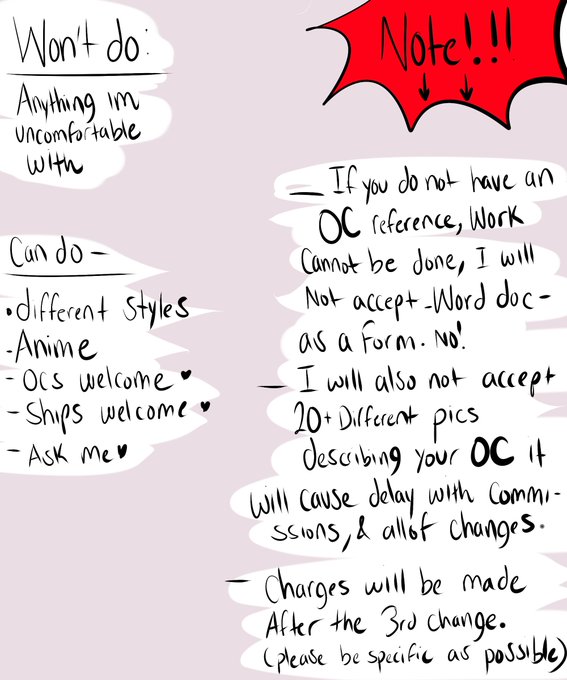 Won't do:
Anything im
uncomfortable
with
Can do -
• different styles
- Anime
- OCs welcome ♥
- Ships welcome ♥
- Ask me ♥
Note!!!
— If you do not have an
OC reference, Work
Cannot be done, I will
Not accept - Word doc -
as a form. No!
— I will also not accept
20+ Different pics
describing your OC it
will cause delay with commi-
ssions, & allof changes.
— Charges will be made
After the 3rd change.
(please be specific as possible)